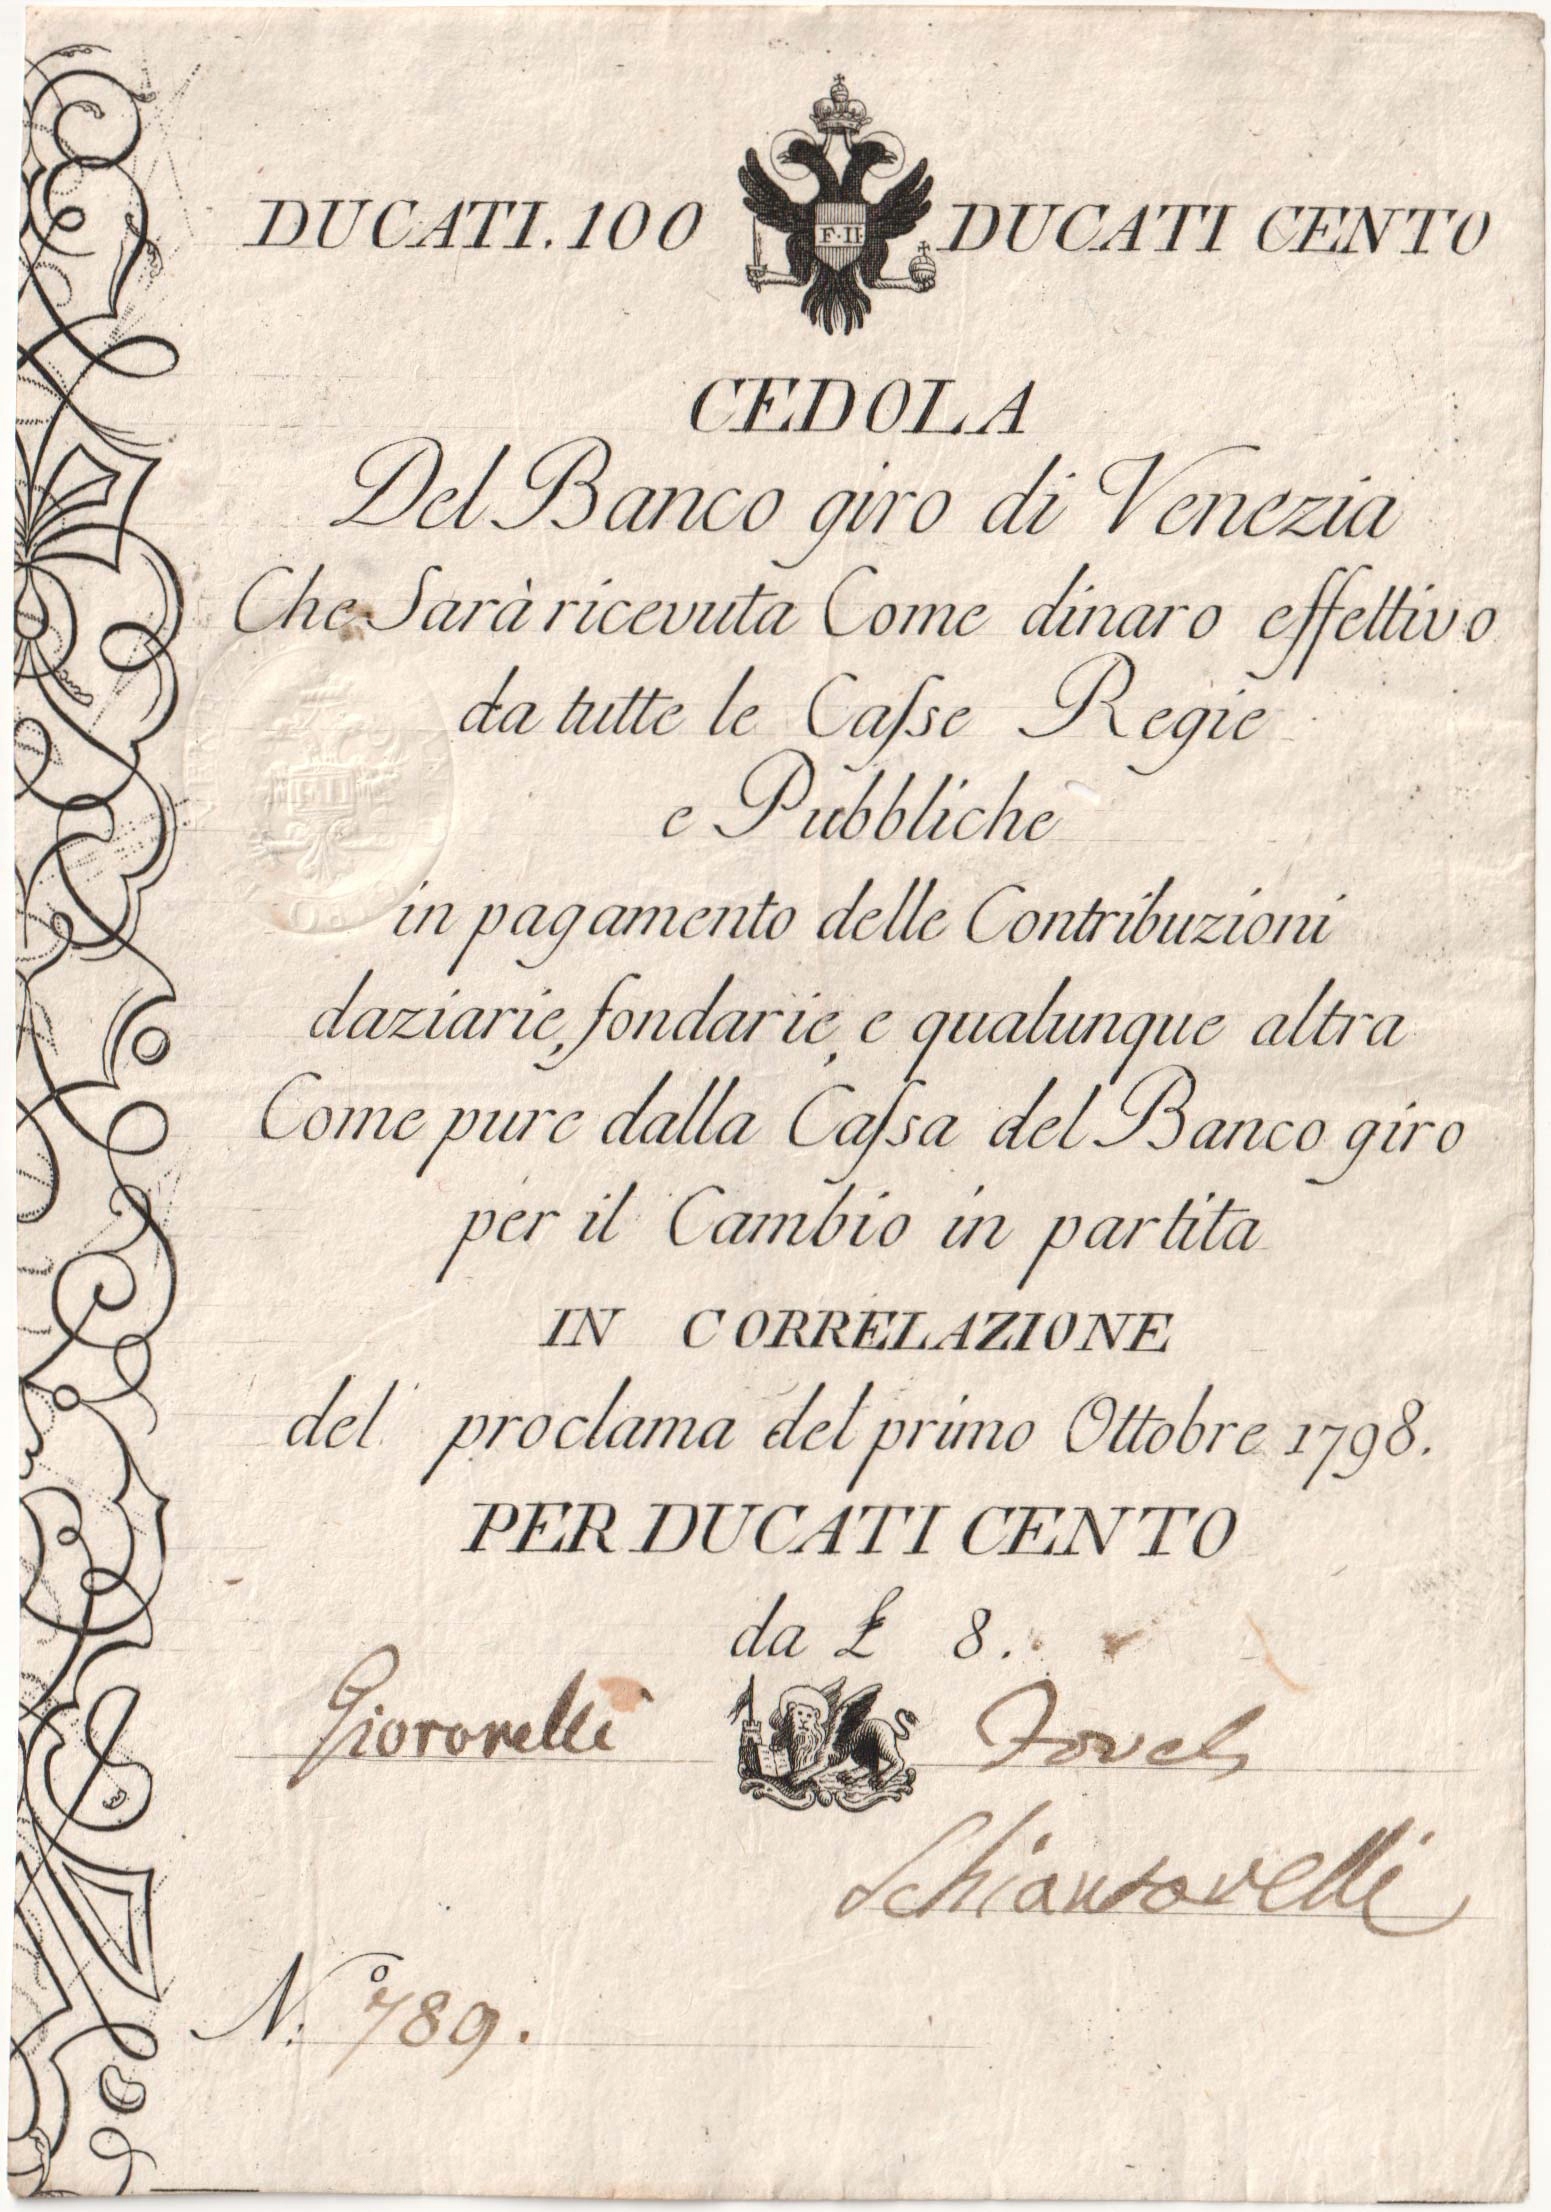 DUCATI. 100 F·II DUCATI CENTO
CEDOLA
Del Banco giro di Venezia
Che Sarà ricevuta Come dinaro effettivo
da tutte le Caſse Regie
e Pubbliche
in pagamento delle Contribuzioni
daziarie, fondarie, e qualunque altra
Come pure dalla Caſsa del Banco giro
per il Cambio in partita
IN CORRELAZIONE
del proclama del primo Ottobre 1798.
PER DUCATI CENTO
da £ 8.
N.º 789.